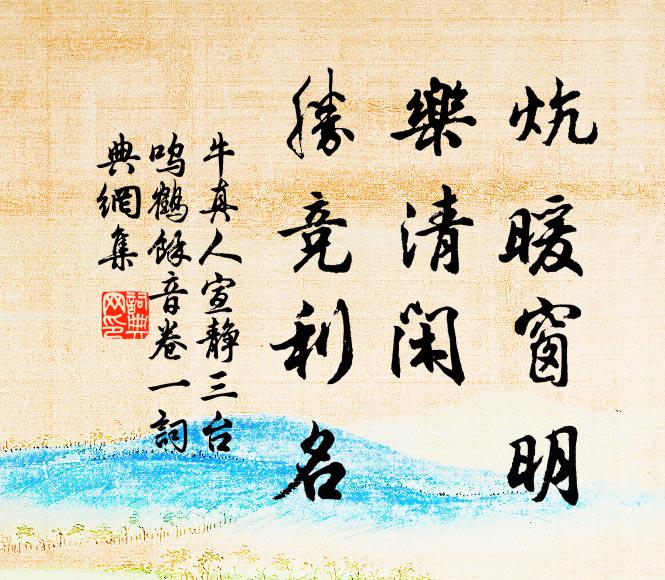 炕暖窗明
樂清閑
勝竞利名
牛真人宣靜三台
鸣鶴餘音卷一詞
典網集
詞典
网印